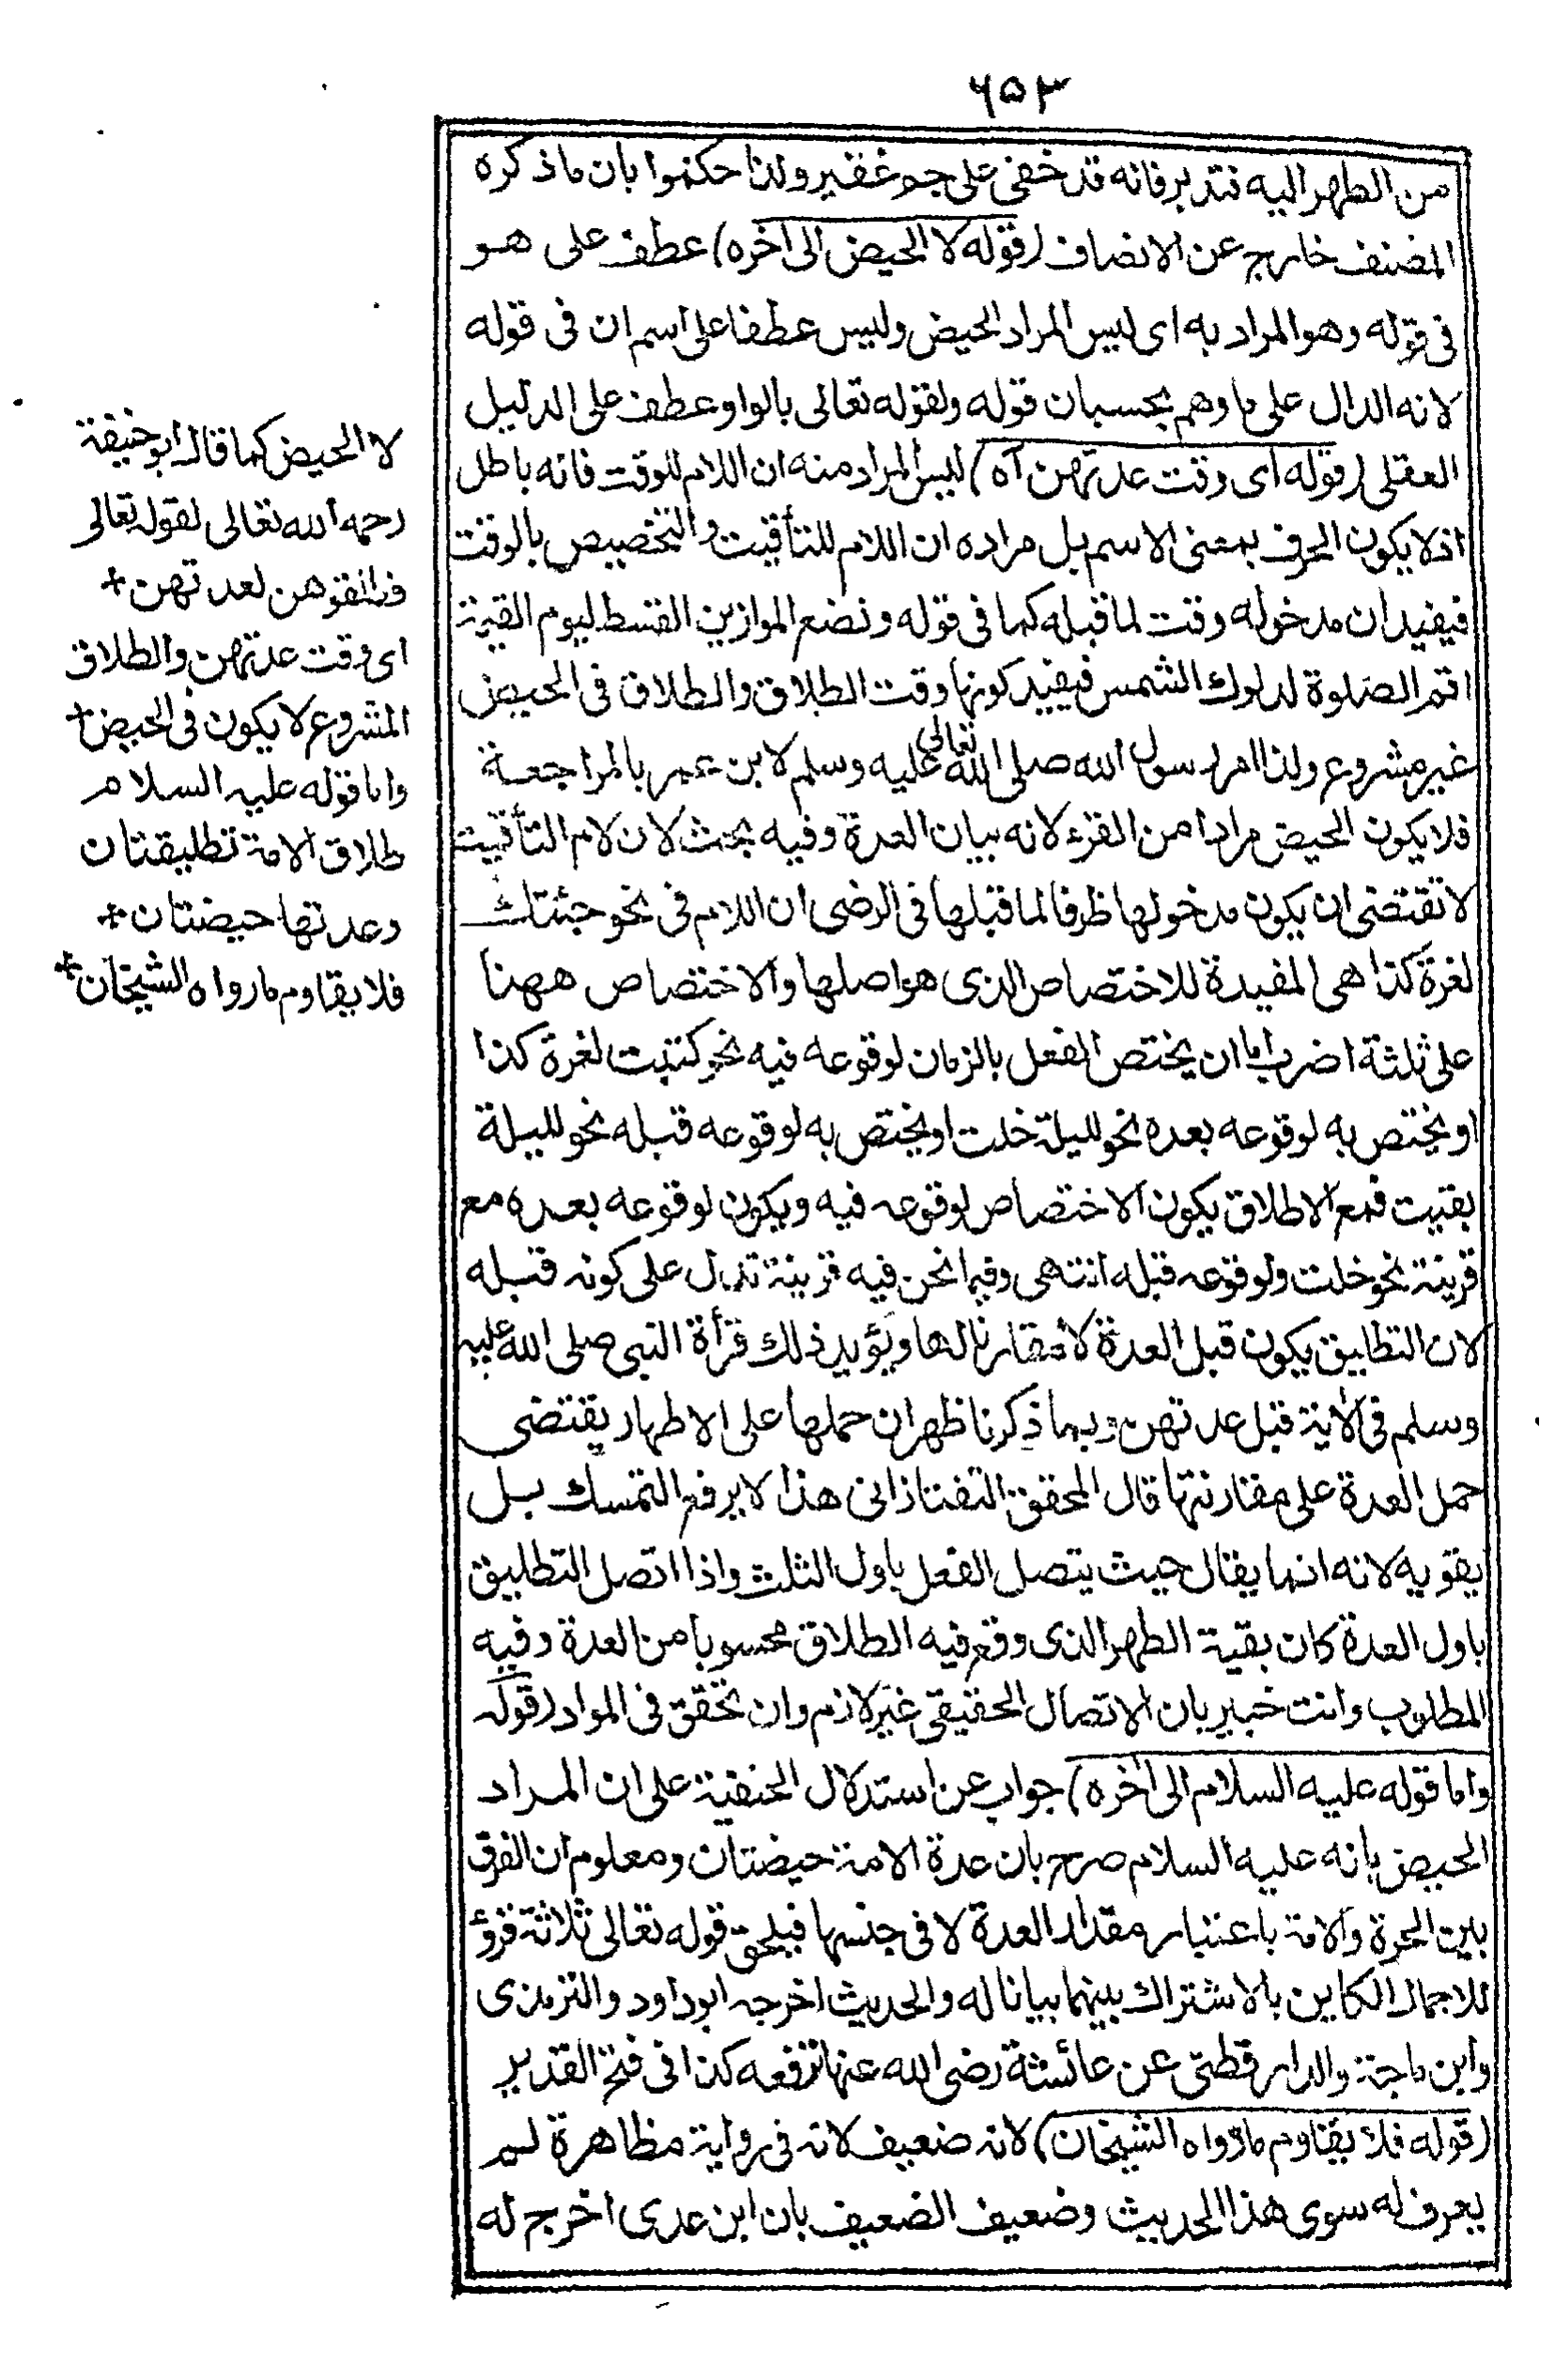 ۶۵۳
من الطهر اليه فتدبر فانه قد خفى على جم غفير ولذا حكموا بان ماذكره
المصنف خارج عن الانصاف (قوله لا الحيض الى اخره) عطف على هو
فى قوله وهو المراد به اى ليس المراد الحيض وليس عطفا على اسم ان فى قوله
لانه الدال على ما وهم بحسبان قوله ولقوله تعالى بالواو عطف على الدليل
العقلى (قوله اى وقت عدتهن آه) ليس المراد منه ان اللام للوقت فانه باطل
اذ لا يكون الحرف بمعنى الاسم بل مراده ان اللام للتأقيت والتخصيص بالوقت
فيفيد ان مدخوله وقت لما قبله كما فى قوله ونضع الموازين القسط ليوم القيمة
اقم الصلوة لدلوك الشمس فيفيد كونها وقت الطلاق والطلاق فى الحيض
غير مشروع ولذا امر رسول الله صلى الله تعالى عليه وسلم لابن عمر بالمراجعة
فلا يكون الحيض مرادا من القرء لانه بيان العدة وفيه بحث لان لام التأقيت
لا تقتضى ان يكون مدخولها ظرفا لما قبلها فى الرضى ان اللام فى نحو جئتك
لغرة كذا هى المفيدة للاختصاص الذى هو اصلها والاختصاص ههنا
على ثلثة اضرب اما ان يختص الفعل بالزمان لوقوعه فيه نحو كتبت لغرة كذا
او يختص به لوقوعه بعده نحو لليلة خلت او يختص به لوقوعه قبله نحو لليلة
بقيت فمع الاطلاق يكون الاختصاص لوقوعه فيه ويكون لوقوعه بعده مع
قرينة نحو خلت ولوقوعه قبله انتهى وفيما نحن فيه قرينة تدل على كونه قبله
لان التطليق يكون قبل العدة لا مقارنا لها ويؤيد ذلك قرأة النبى صلى الله عليه
وسلم فى الاية قبل عدتهن وبما ذكرنا ظهر ان حملها على الاطهار يقتضى
حمل العدة على مقارنتها قال المحقق التفتازانى هذا لا يرفع التمسك بل
يقويه لانه انما يقال حيث يتصل الفعل باول الثلث واذا اتصل التطليق
باول العدة كان بقية الطهر الذى وقع فيه الطلاق محسوبا من العدة وفيه
المطلوب وانت خبير بان الاتصال الحقيقى غير لازم وان تحقق فى المواد (قوله
واما قوله عليه السلام الى اخره) جواب عن استدلال الحنفية على ان المراد
الحيض بانه عليه السلام صرح بان عدة الامة حيضتان ومعلوم ان الفرق
بين الحرة والامة باعتبار مقدار العدة لا فى جنسها فيلحق قوله تعالى ثلاثة قروٴ
للاجمال الكاين بالاشتراك بينهما بيانا له والحديث اخرجه ابوداود والترمذى
وابن ماجة والدارقطنى عن عائشة رضى الله عنها ترفعه كذا فى فتح القدير
(قوله فلا يقاوم ما رواه الشيخان) لانه ضعيف لانه فى رواية مظاهرة لم
يعرف له سوى هذا الحديث وضعيف الضعيف بان ابن عدى اخرج له
لا الحيض كما قال ابوحنيفة
رحمه الله تعالى لقوله تعالى
فطلقوهن لعدتهن +
اى وقت عدتهن والطلاق
المشروع لا يكون فى الحيض +
واما قوله عليه السلام
طلاق الامة تطليقتان
وعدتها حيضتان +
فلا يقاوم ما رواه الشيخان +